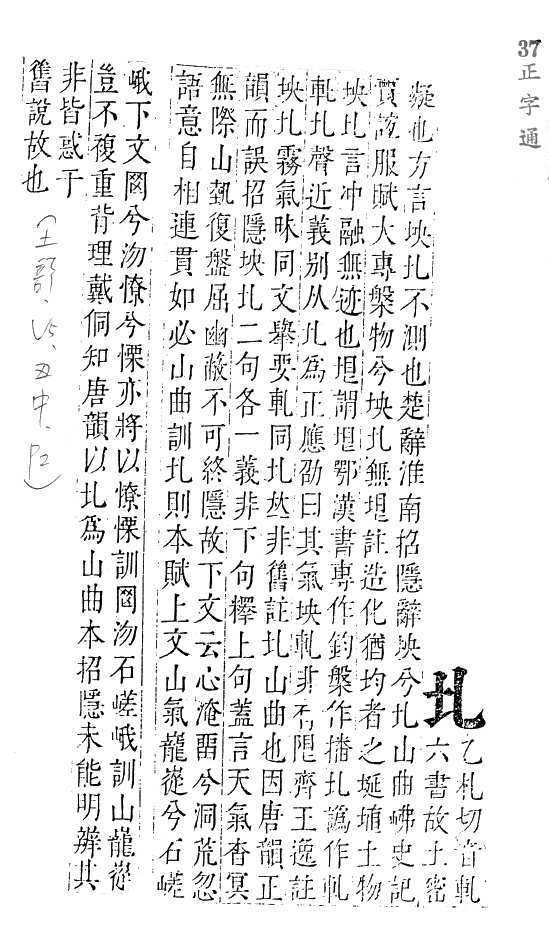 37
正字通
圠
乙札切音軋
六書故土密
凝也方言坱圠不測也楚辭淮南招隱辭坱兮圠山曲岪史記
賈誼服賦大專槃物兮坱圠無垠註造化猶均者之埏埴土物
坱圠言冲融無迹也垠謂垠鄂漢書專作鈞槃作播圠譌作軋
軋圠聲近義别从圠爲正應劭曰其氣坱軋非有限齊王逸註
坱圠霧氣昧同文舉要軋同圠𠀤非舊註圠山曲也因唐韻正
韻而誤招隱坱圠二句各一義非下句釋上句蓋言天氣杳冥
無際山埶復盤屈幽蔽不可終隱故下文云心淹畱兮洞荒忽
語意自相連貫如必山曲訓圠則本賦上文山氣龍嵸兮石嵯
峨下文罔兮沕憭兮慄亦將以憭慄訓罔沕石嵯峨訓山龍嵸
豈不複重背理戴侗知唐韻以圠爲山曲本招隱未能明辨其
非皆惑于
舊說故也
土部